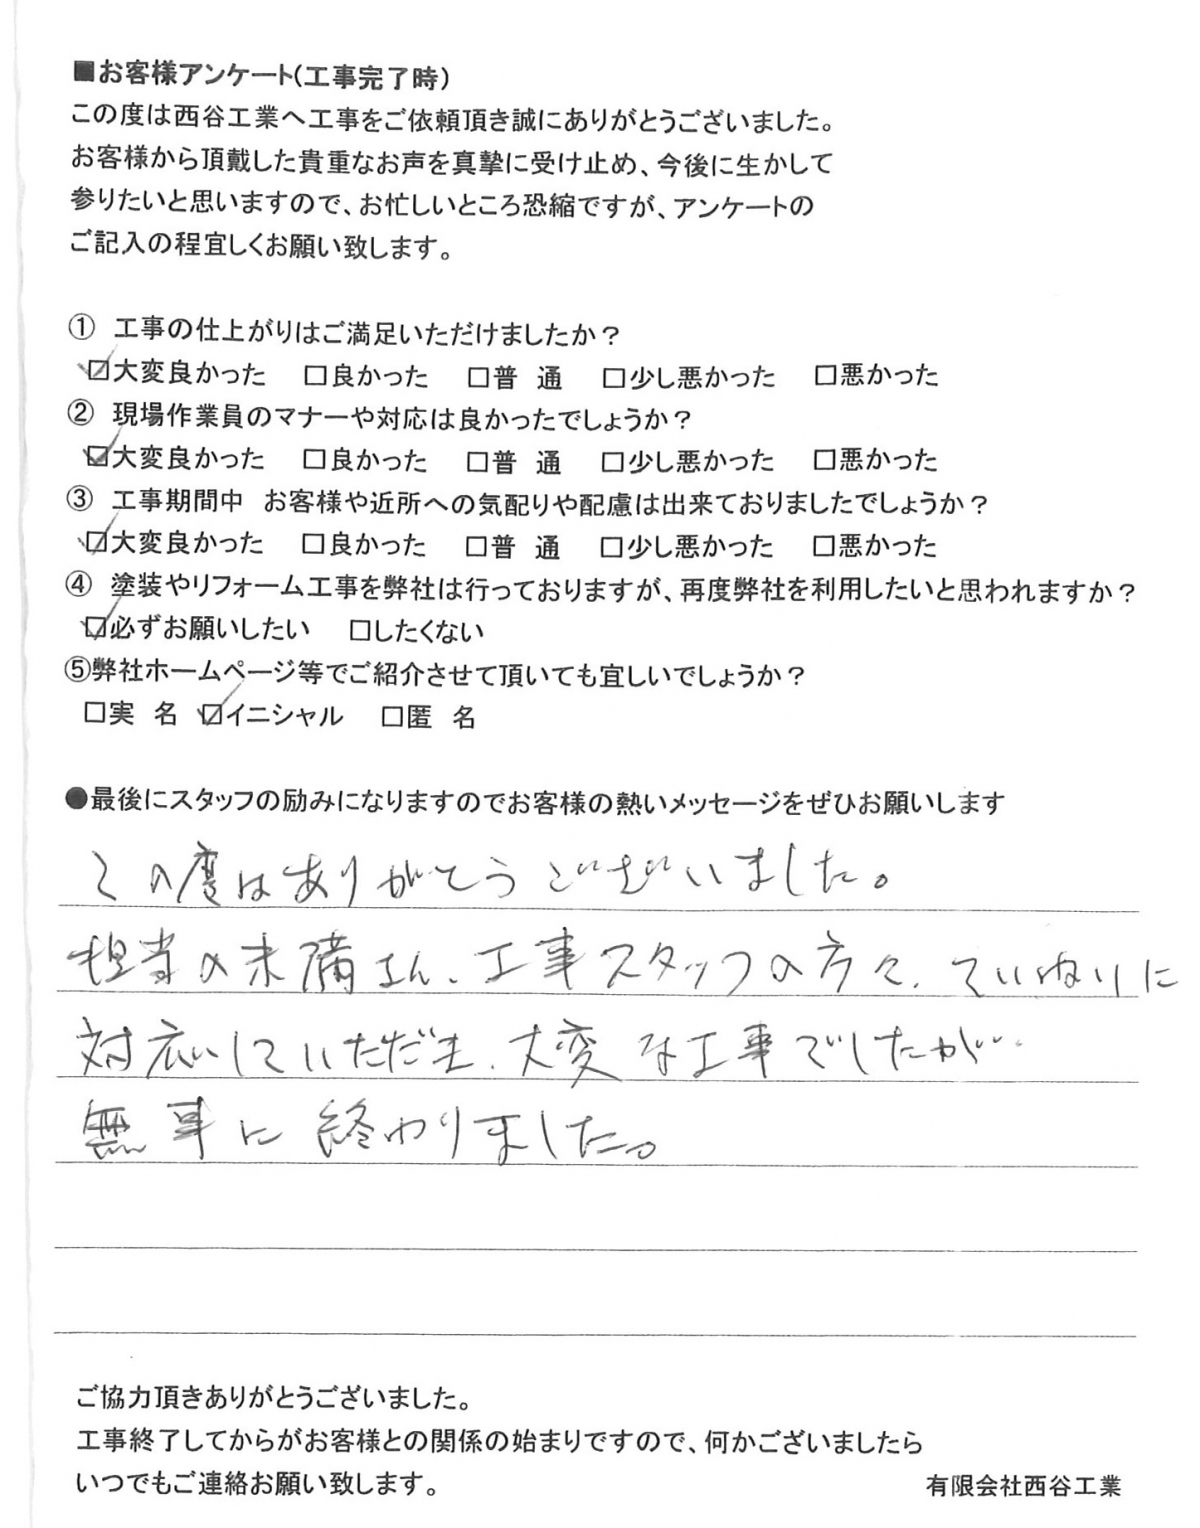 ■お客様アンケート(工事完了時)
この度は西谷工業へ工事をご依頼頂き誠にありがとうございました。
お客様から頂戴した貴重なお声を真摯に受け止め、今後に生かして
参りたいと思いますので、お忙しいところ恐縮ですが、アンケートの
ご記入の程宜しくお願い致します。
① 工事の仕上がりはご満足いただけましたか？
☑大変良かった □良かった □普 通 □少し悪かった □悪かった
② 現場作業員のマナーや対応は良かったでしょうか？
☑大変良かった □良かった □普 通 □少し悪かった □悪かった
③ 工事期間中 お客様や近所への気配りや配慮は出来ておりましたでしょうか？
☑大変良かった □良かった □普 通 □少し悪かった □悪かった
④ 塗装やリフォーム工事を弊社は行っておりますが、再度弊社を利用したいと思われますか？
☑必ずお願いしたい □したくない
⑤弊社ホームページ等でご紹介させて頂いても宜しいでしょうか？
□実 名 ☑イニシャル □匿 名
●最後にスタッフの励みになりますのでお客様の熱いメッセージをぜひお願いします
この度はありがとうございました。
担当の未満さん、工事スタッフの方々、ていねいに
対応していただき、大変な工事でしたが…
無事に終わりました。
ご協力頂きありがとうございました。
工事終了してからがお客様との関係の始まりですので、何かございましたら
いつでもご連絡お願い致します。
有限会社西谷工業